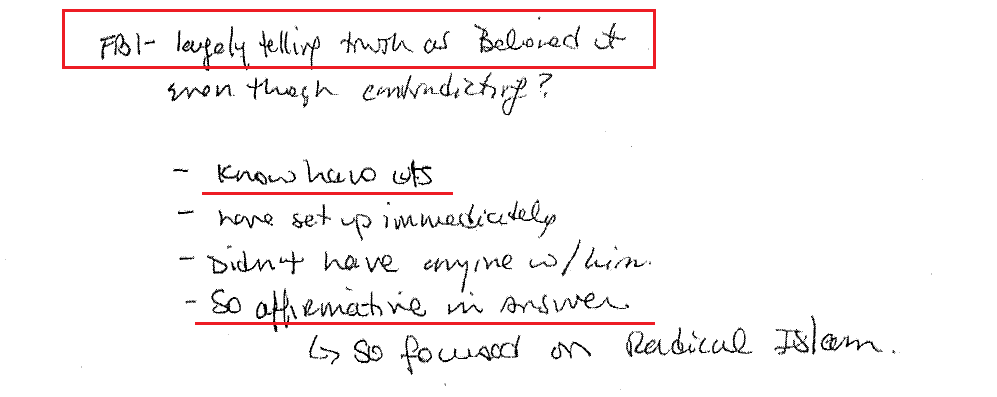 FBI - largely telling truth as Believed it
even though contradicting?
- Know have cuts
- have set up immediately
- Didn't have anyone w/him.
- So affirmative in answer
↳ so focused on Radical Islam.